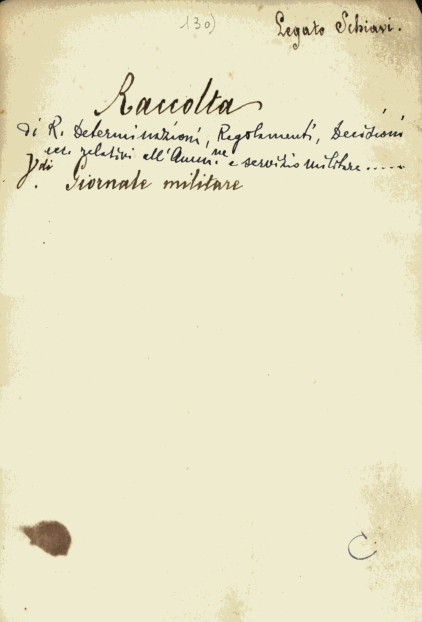 130)
Legato Schiavi.
Raccolta
di R. Determinazioni, Regolamenti, Decisioni
ecc. relativi all'Ammi.ne e servizio militare.....
Vdi. Giornale militare
C